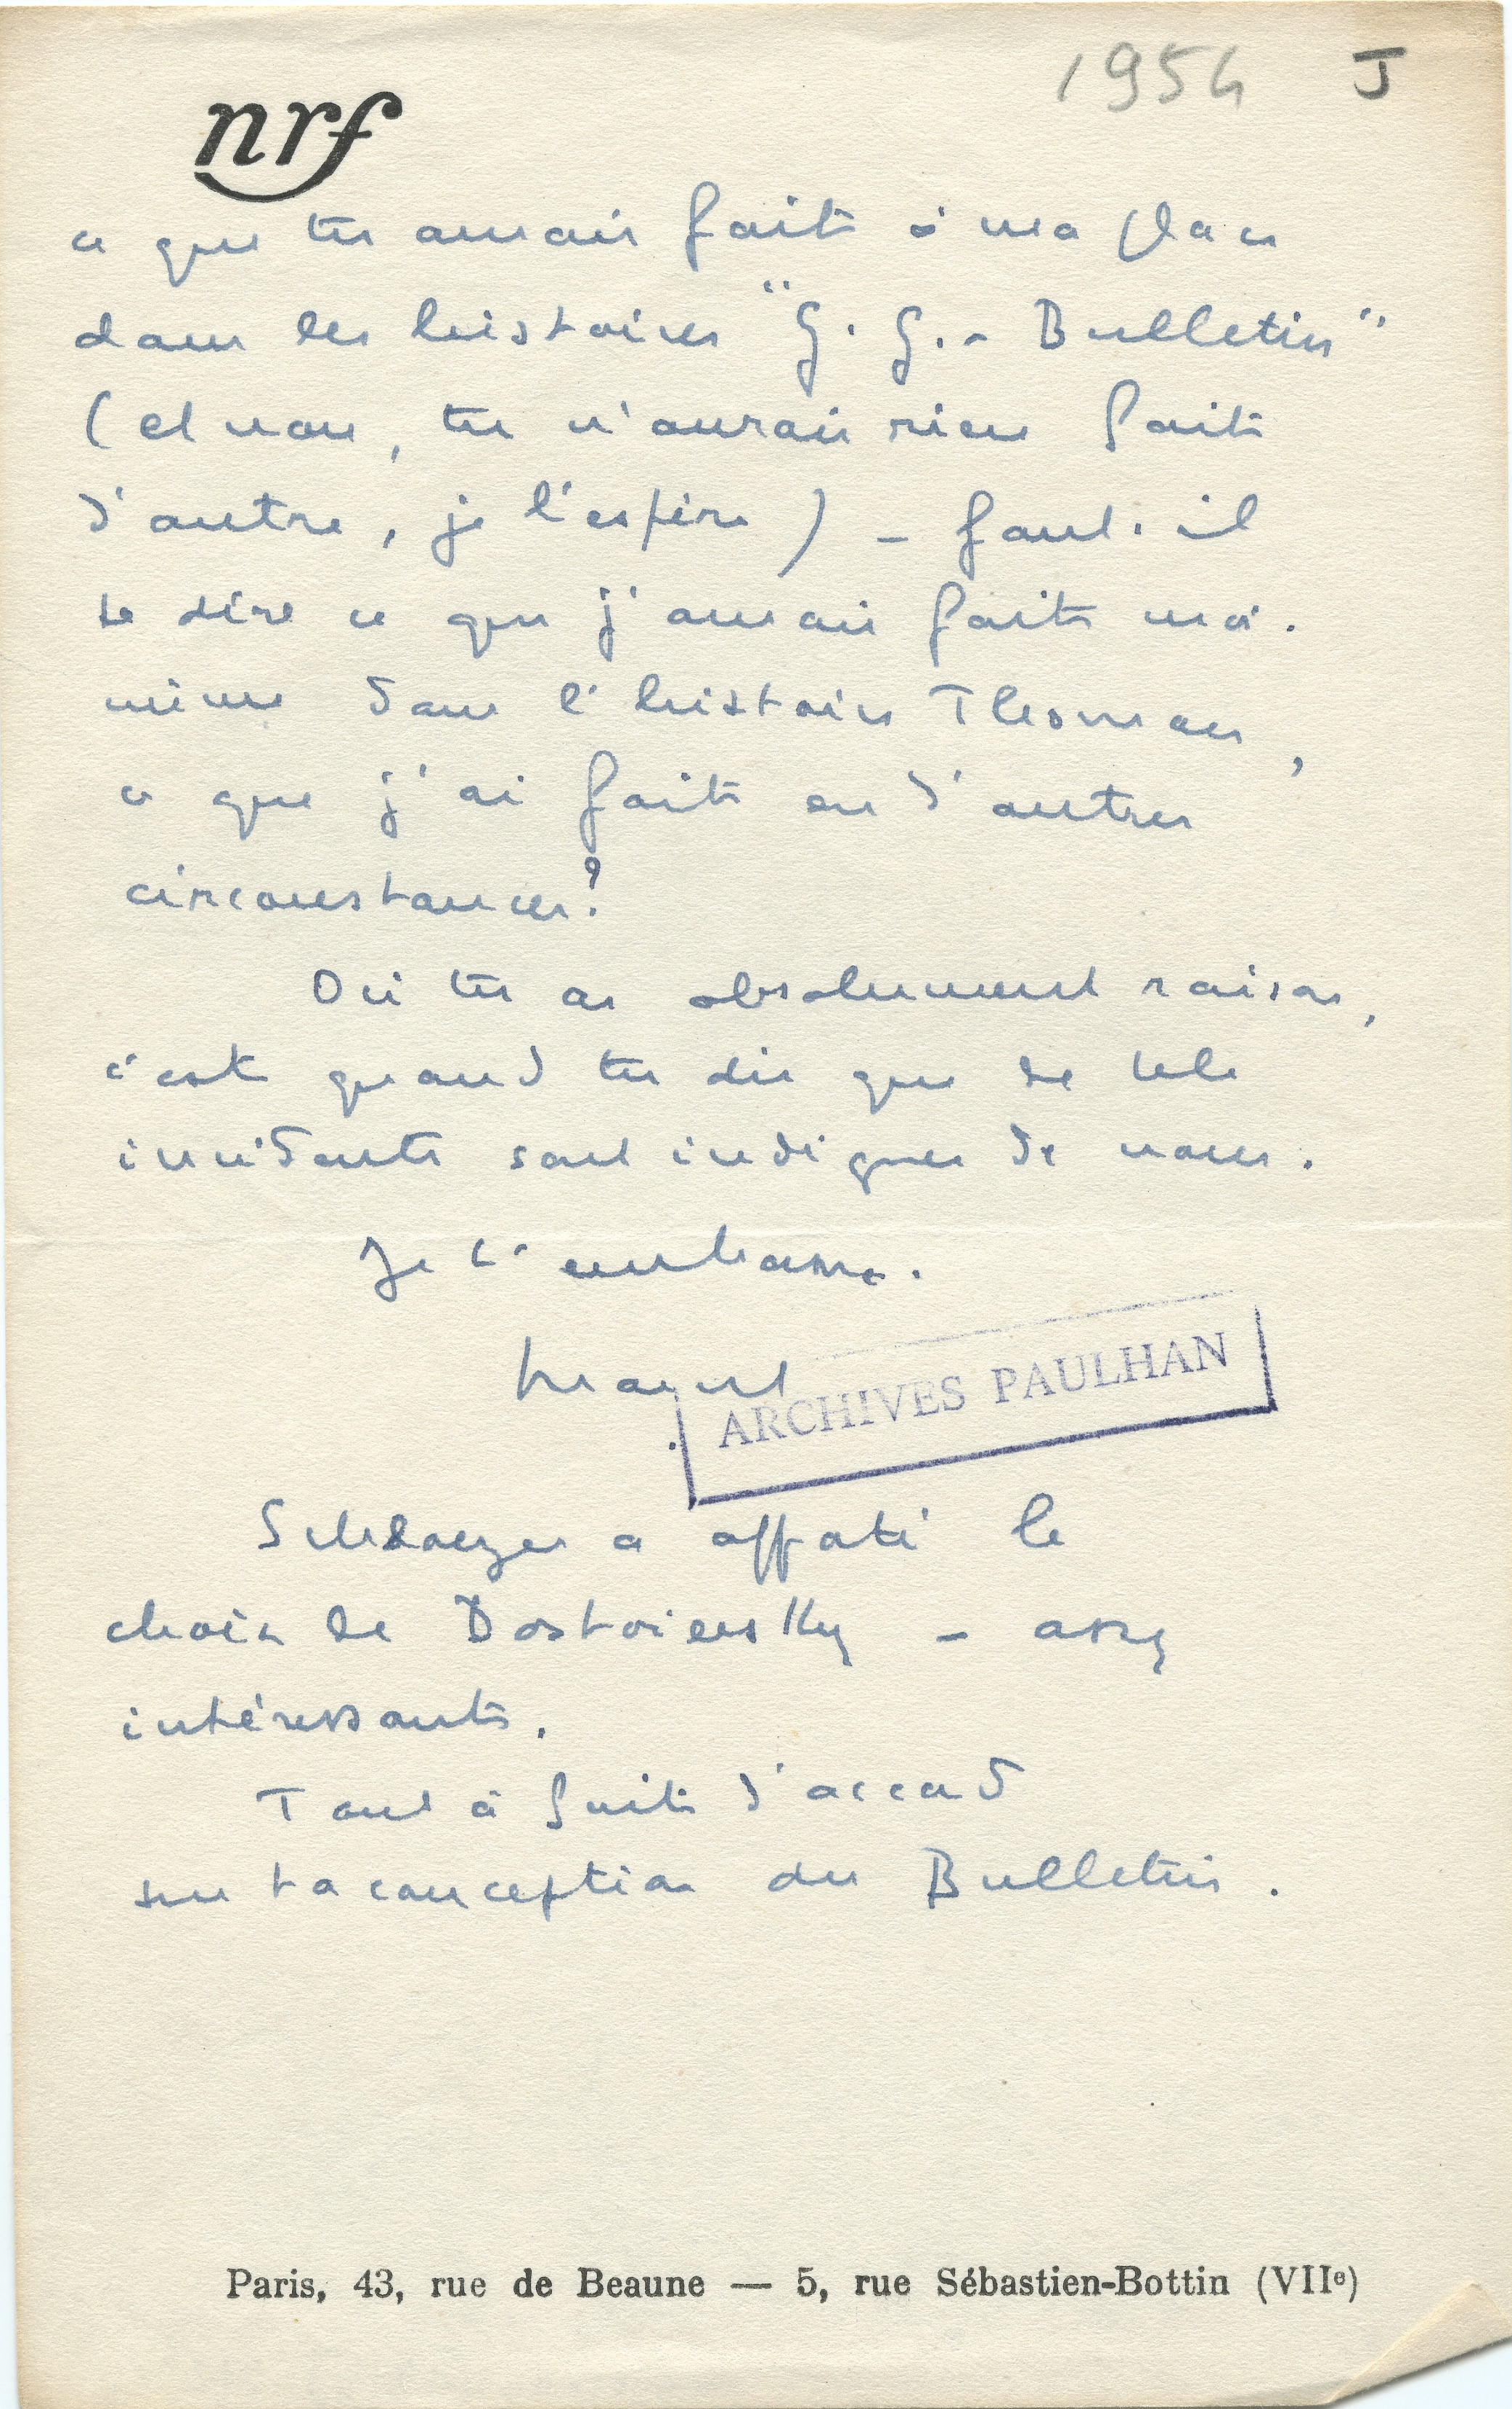 1954 J
nrf
ce que tu aurais fait à ma place
dans les histoires "G. G. - Bulletin"
(et non, tu n'aurais rien fait
d'autre, je l'espère) - faut-il
te dire ce que j'aurais fait moi-
même dans l'histoire Thomas,
ce que j'ai fait en d'autres
circonstances?
Où tu as absolument raison,
c'est quand tu dis que de tels
incidents sont indignes de nous.
Je t'embrasse.
Marcel
ARCHIVES PAULHAN
Schloezer a apporté le
choix de Dostoievsky - assez
intéressant.
Tout à fait d'accord
sur ta conception du Bulletin.
Paris, 43, rue de Beaune — 5, rue Sébastien-Bottin (VIIe)